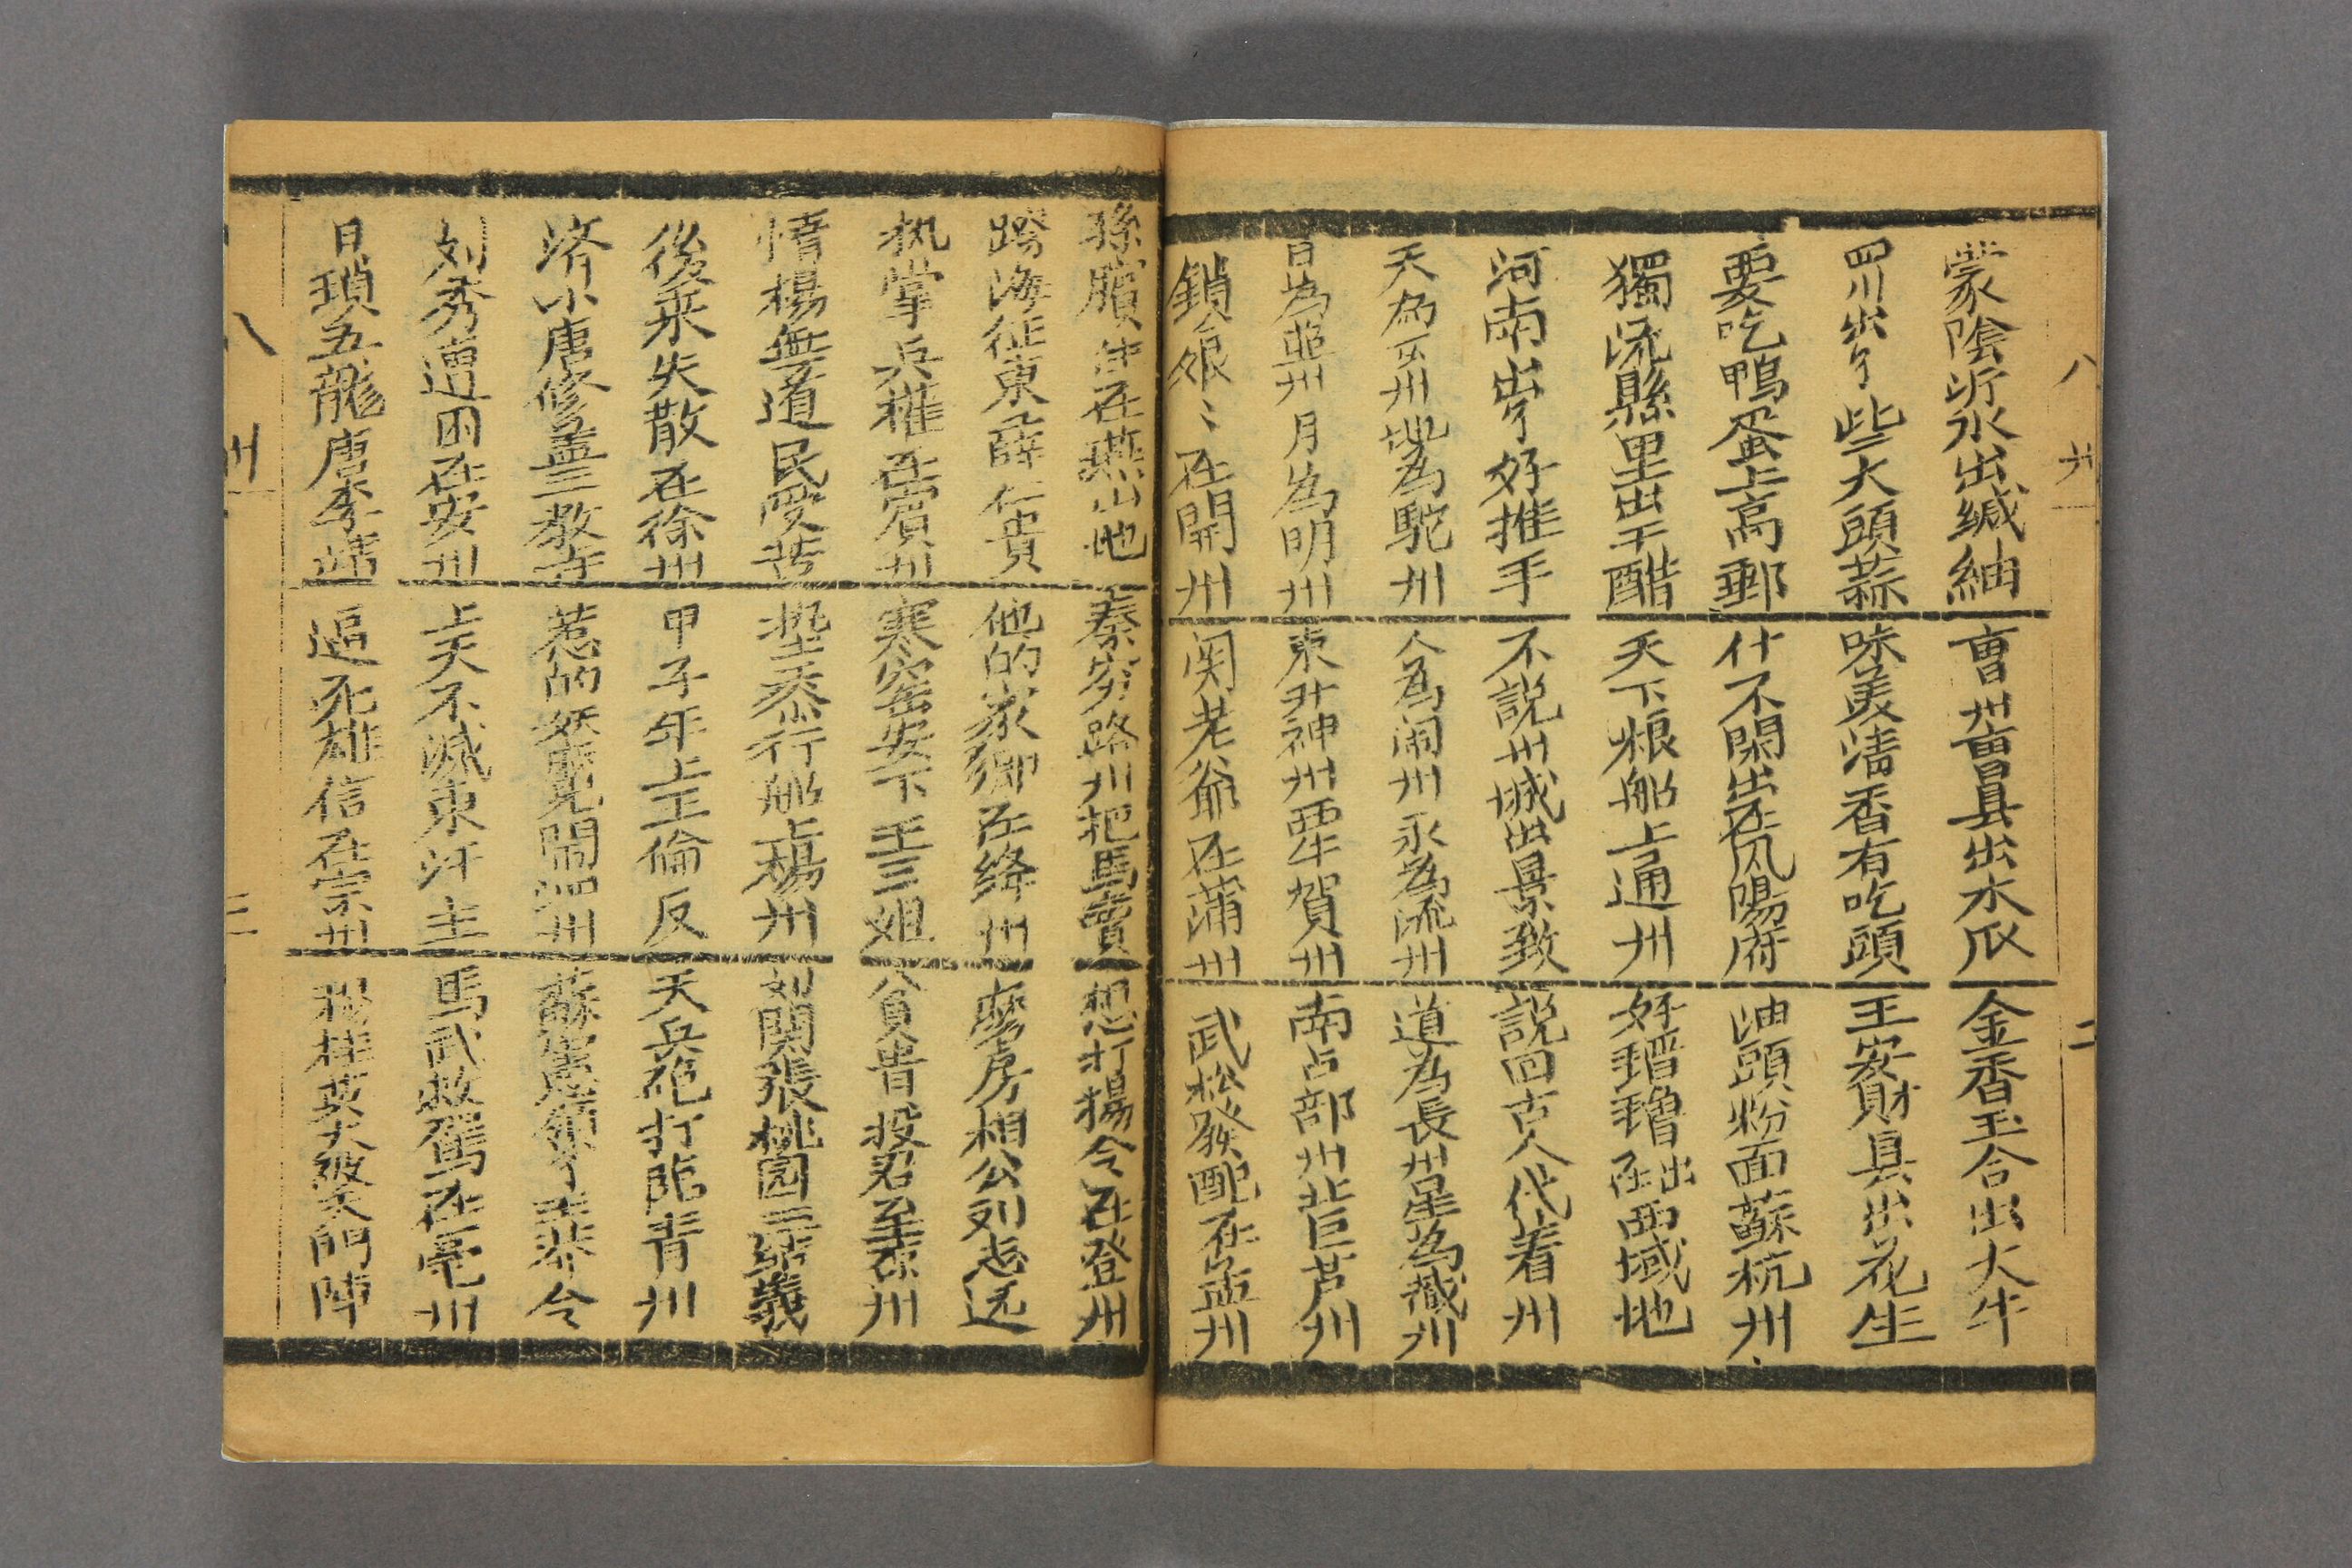 八州
二
蒙陰沂水出緘紬 曺州曺县出水瓜 金香玉合出大牛
四川出了些大頭蒜 味美清香有吃頭 王家財具出花生
要吃鴨蛋上高郵 什不閑出在凤陽府 油頭粉面蘇杭州
獨流縣里出干醋 天下粮船上通州 好 出在西域地
河南出了好推手 不説州城出景致 説回古人代着州
天為 州地為駝州 人為闹州永為流州 道為長州星為藏州
日為 州月為明州 東升神州西牛賀州 南占部州北巨芦州
鎖 娘〻在開州 関老爺在蒲州 武松發配在孟州
孫臏住在燕山地 秦穷路州把馬賣 想打楊令在登州
跨海征東薛仁貴 他的家鄉在绛州 磨房相公刘志远
执掌兵權在賓州 寒窑安下王三姐 貧貴投君至 州
惰楊無道民受苦 龙行船上楊州 刘関張桃园三结義
後来失散在徐州 甲子年上王倫反 天兵砲打临青州
済小唐修盖三教寺 惹的妖魔兒鬧泗州 蘇 領了王莽令
刘秀遭困在安州 上天不滅東汗主 馬武救駕在亳州
日瑣五龍唐李靖 逼死雄信在宗州 穆桂英大破天門陣
八州
三